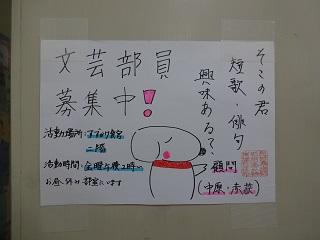 文芸部員
募集中!
そこの君
短歌・俳句
興味ある?
活動場所:
二階
活動時間:金曜午後2時〜
お昼休み部室にいます
顧問
(中原・赤荻)